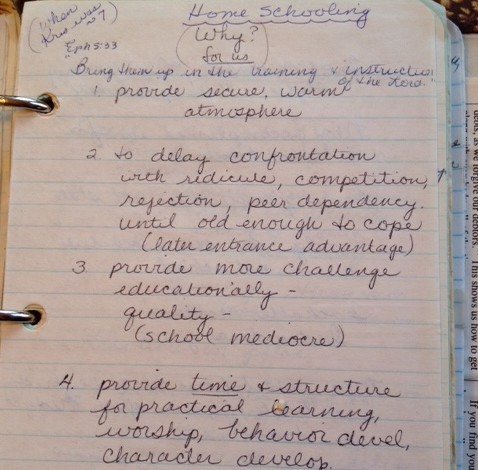 Home Schooling
(when
Kris was
~7)
(Why?
for us)
"Eph 5:33
Bring them up in the training & instruction
of the Lord."
1. provide secure, warm
atmosphere
2. to delay confrontation
with ridicule, competition,
rejection, peer dependency.
until old enough to cope
(later entrance advantage)
3. provide more challenge
educationally -
quality -
(school mediocre)
4. provide time & structure
for practical learning,
worship, behavior devel,
character develop.
debts, as we forgive our debtors. This shows us how to get
If you find you